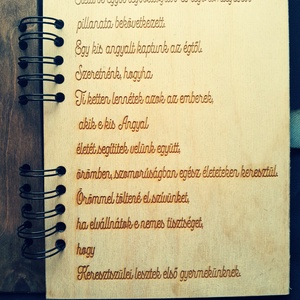 pillanata bekövetkezett.
Egy kis angyalt kaptunk az égtől.
Szeretnénk, hogyha
Ti ketten lennétek azok az emberek,
akik e kis Angyal
életét segítitek velünk együtt,
örömben, szomorúságban egész életeteken keresztül.
Örömmel töltené el szívünket,
ha elvállnátok e nemes tisztséget,
hogy
Keresztszülei lesztek első gyermekünknek.